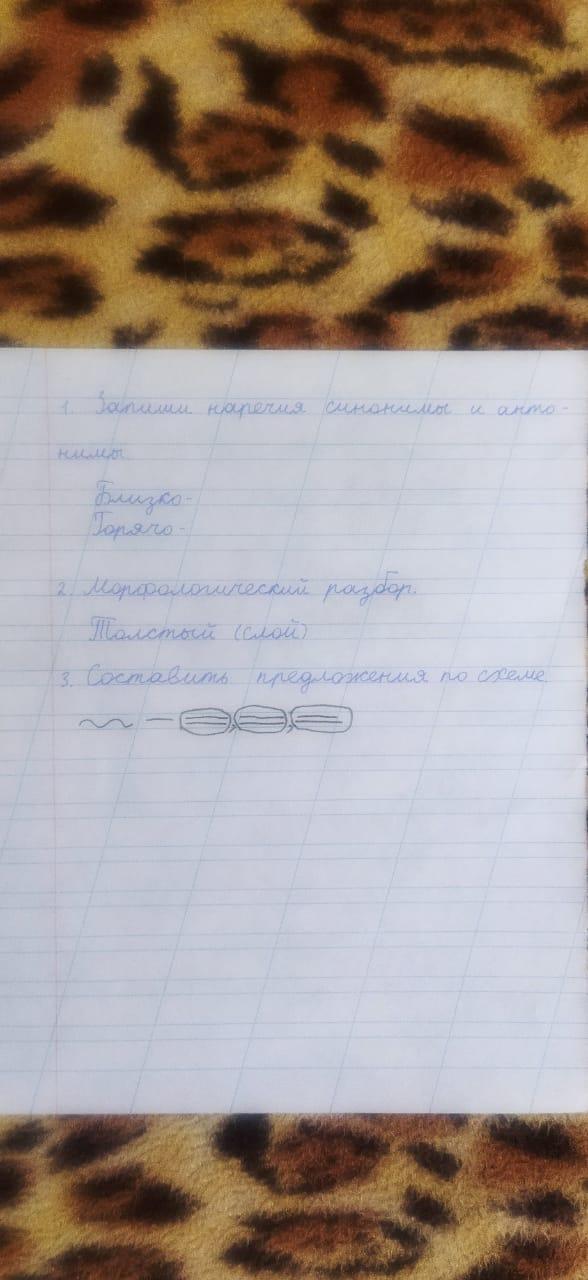 1. Запиши наречия синонимы и анто-
нимы.
Близко-
Горячо-
2. Морфологический разбор.
Толстый (слой)
3. Составить предложения по схеме